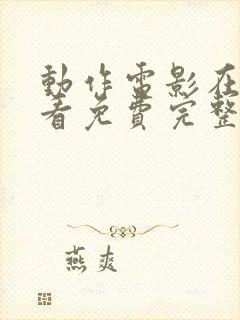 動作電影在
看免費完整
燕爽